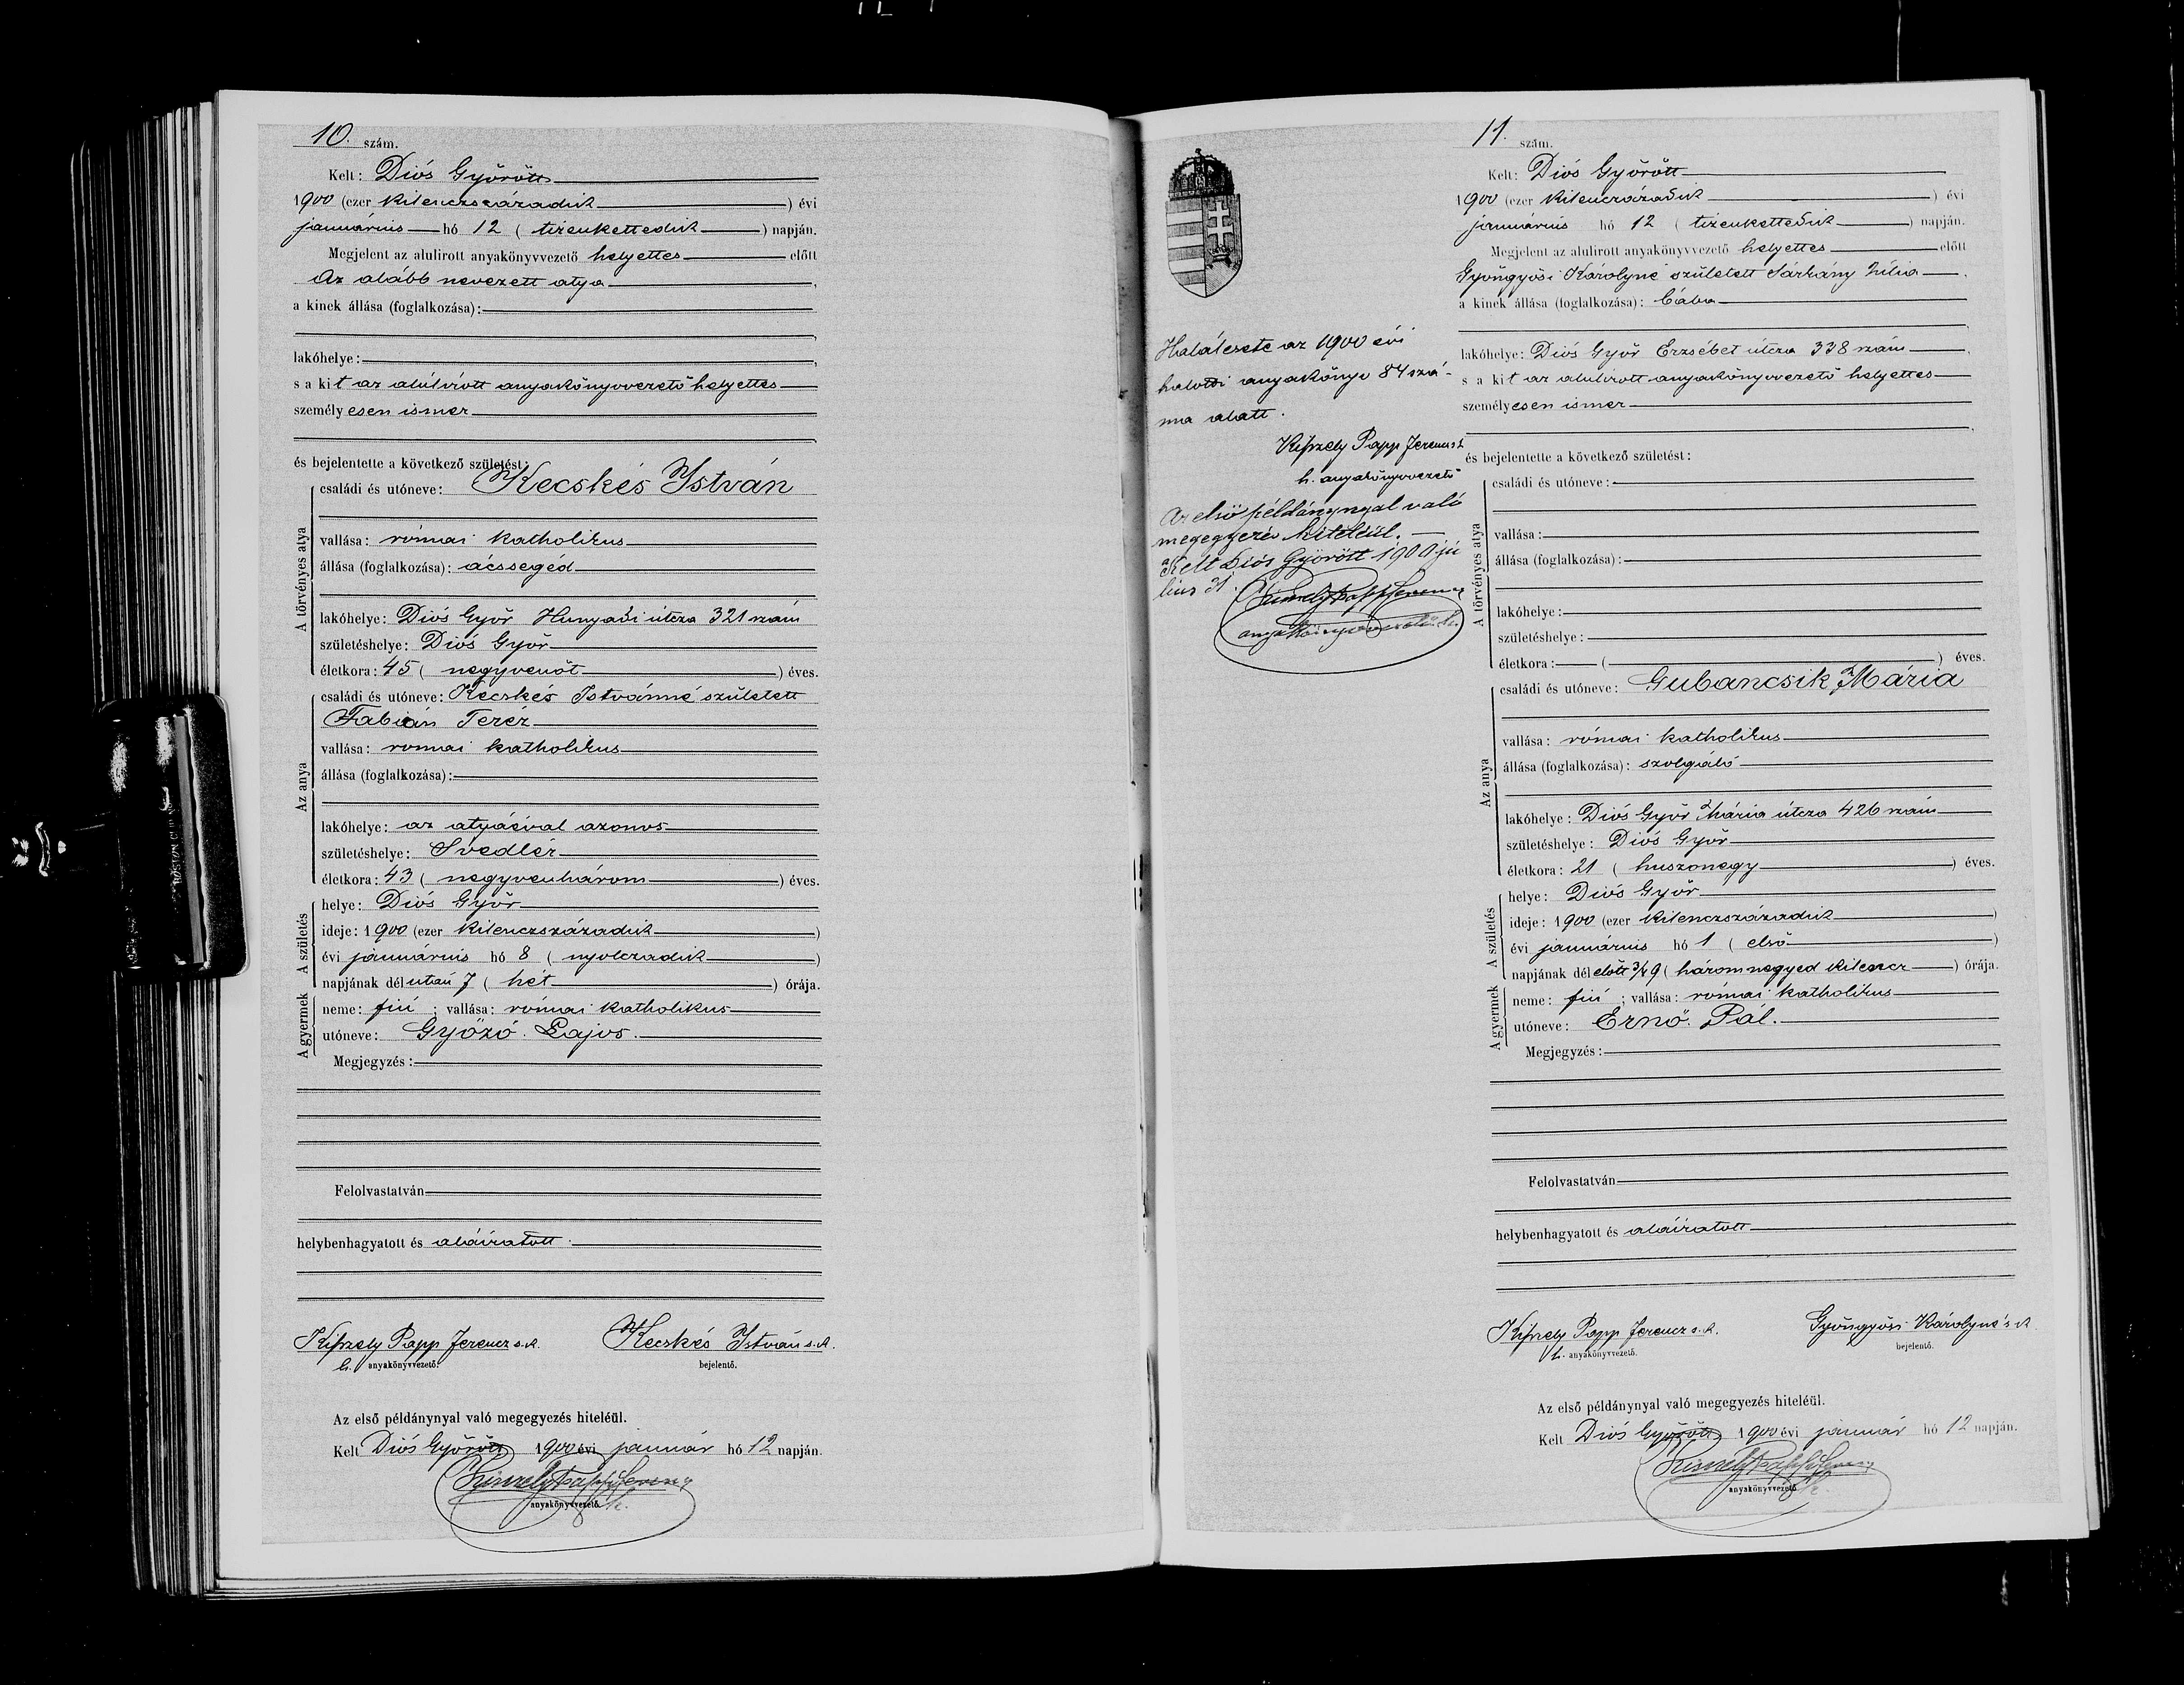 10. szám.
Kelt: Diós Győrött
1900 (ezer kilenczszázadik) évi
januárius hó 12 (tizenkettedik) napján.
Megjelent az alulirott anyakönyvvezető helyettes előtt
Az alább nevezett atya,
a kinek állása (foglalkozása):
lakóhelye:
s a kit az alúlírott anyakönyvvezető helyettes
személyesen ismer
és bejelentette a következő születést:
A törvényes atya
családi és utóneve: Kecskés István
vallása: római katholikus
állása (foglalkozása): ácssegéd
lakóhelye: Diós Győr Hunyadi útcza 321 szám
születéshelye: Diós Győr
életkora: 45 (negyvenöt) éves.
Az anya
családi és utóneve: Kecskés Istvánné született
Fabián Teréz
vallása: római katholikus
állása (foglalkozása):
lakóhelye: az atyáéval azonos
születéshelye: Svedlér
életkora: 43 (negyvenhárom) éves.
A születés
helye: Diós Győr
ideje: 1900 (ezer kilenczszázadik)
évi januárius hó 8 (nyolczadik)
napjának délután 7 (hét) órája.
A gyermek
neme: fiú; vallása: római katholikus
utóneve: Győző. Lajos.
Megjegyzés:
Felolvastatván
helybenhagyatott és aláiratott.
Kiszely Papp Ferencz s.k. Kecskés István s.k.
h. anyakönyvvezető. bejelentő.
Az első példánynyal való megegyezés hiteléül.
Kelt Diós Győrött 1900 évi január hó 12 napján.
Kiszely Papp Ferencz
anyakönyvvezető h.
11. szám.
Kelt: Diós Győrött
1900 (ezer kilenczszázadik) évi
januárius hó 12 (tizenkettedik) napján.
Megjelent az alulirott anyakönyvvezető helyettes előtt
Gyöngyösi Károlyné született Sárkány Júlia,
a kinek állása (foglalkozása): bába
lakóhelye: Diós Győr Erzsébet útcza 338 szám,
s a kit az alulirott anyakönyvvezető helyettes
személyesen ismer
és bejelentette a következő születést:
A törvényes atya
családi és utóneve:
vallása:
állása (foglalkozása):
lakóhelye:
születéshelye:
életkora: ( ) éves.
Az anya
családi és utóneve: Gubancsik Mária
vallása: római katholikus
állása (foglalkozása): szolgáló
lakóhelye: Diós Győr Mária útcza 426 szám
születéshelye: Diós Győr
életkora: 21 (huszonegy) éves.
A születés
helye: Diós Győr
ideje: 1900 (ezer kilenczszázadik)
évi januárius hó 1 (első)
napjának délelőtt 3/4 9 (háromnegyed kilencz) órája.
A gyermek
neme: fiú; vallása: római katholikus
utóneve: Ernő. Pál.
Megjegyzés:
Felolvastatván
helybenhagyatott és aláiratott
Kiszely Papp Ferencz s.k. Gyöngyösi Károlyné s.k.
h. anyakönyvvezető. bejelentő.
Az első példánynyal való megegyezés hiteléül.
Kelt Diós Győrött 1900 évi január hó 12 napján.
Kiszely Papp Ferencz
anyakönyvvezető h.
Halálesete az 1900 évi
halotti anyakönyv 84 szá-
ma alatt.
Kiszely Papp Ferencz s.k.
h. anyakönyvvezető
Az első példánynyal való
megegyezés hiteléül.
Kelt Diós Győrött 1900 jú
lius 31.
Kiszely Papp Ferencz
anyakönyvvezető h.